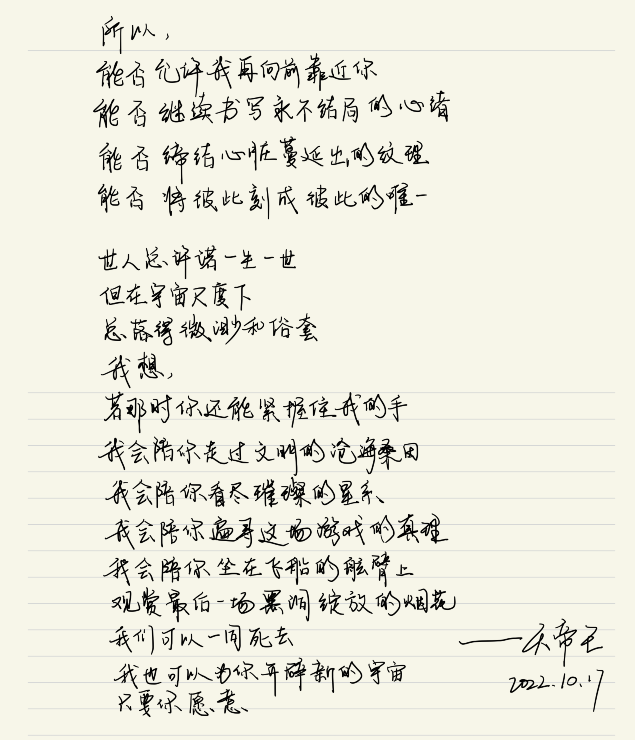 所以，
能否允许我再向前靠近你
能否继续书写永不结局的心绪
能否缔结心脏蔓延出的纹理
能否将彼此刻成彼此的唯一
世人总许诺一生一世
但在宇宙尺度下
总落得微渺和俗套
我想，
若那时你还能紧握住我的手
我会陪你走过文明的沧海桑田
我会陪你看尽璀璨的星系
我会陪你遍寻这场游戏的真理
我会陪你坐在飞船的舷臂上
观赏最后一场黑洞绽放的烟花
我们可以一同死去
我也可以为你开辟新的宇宙
只要你愿意
——天帝王
2022.10.17